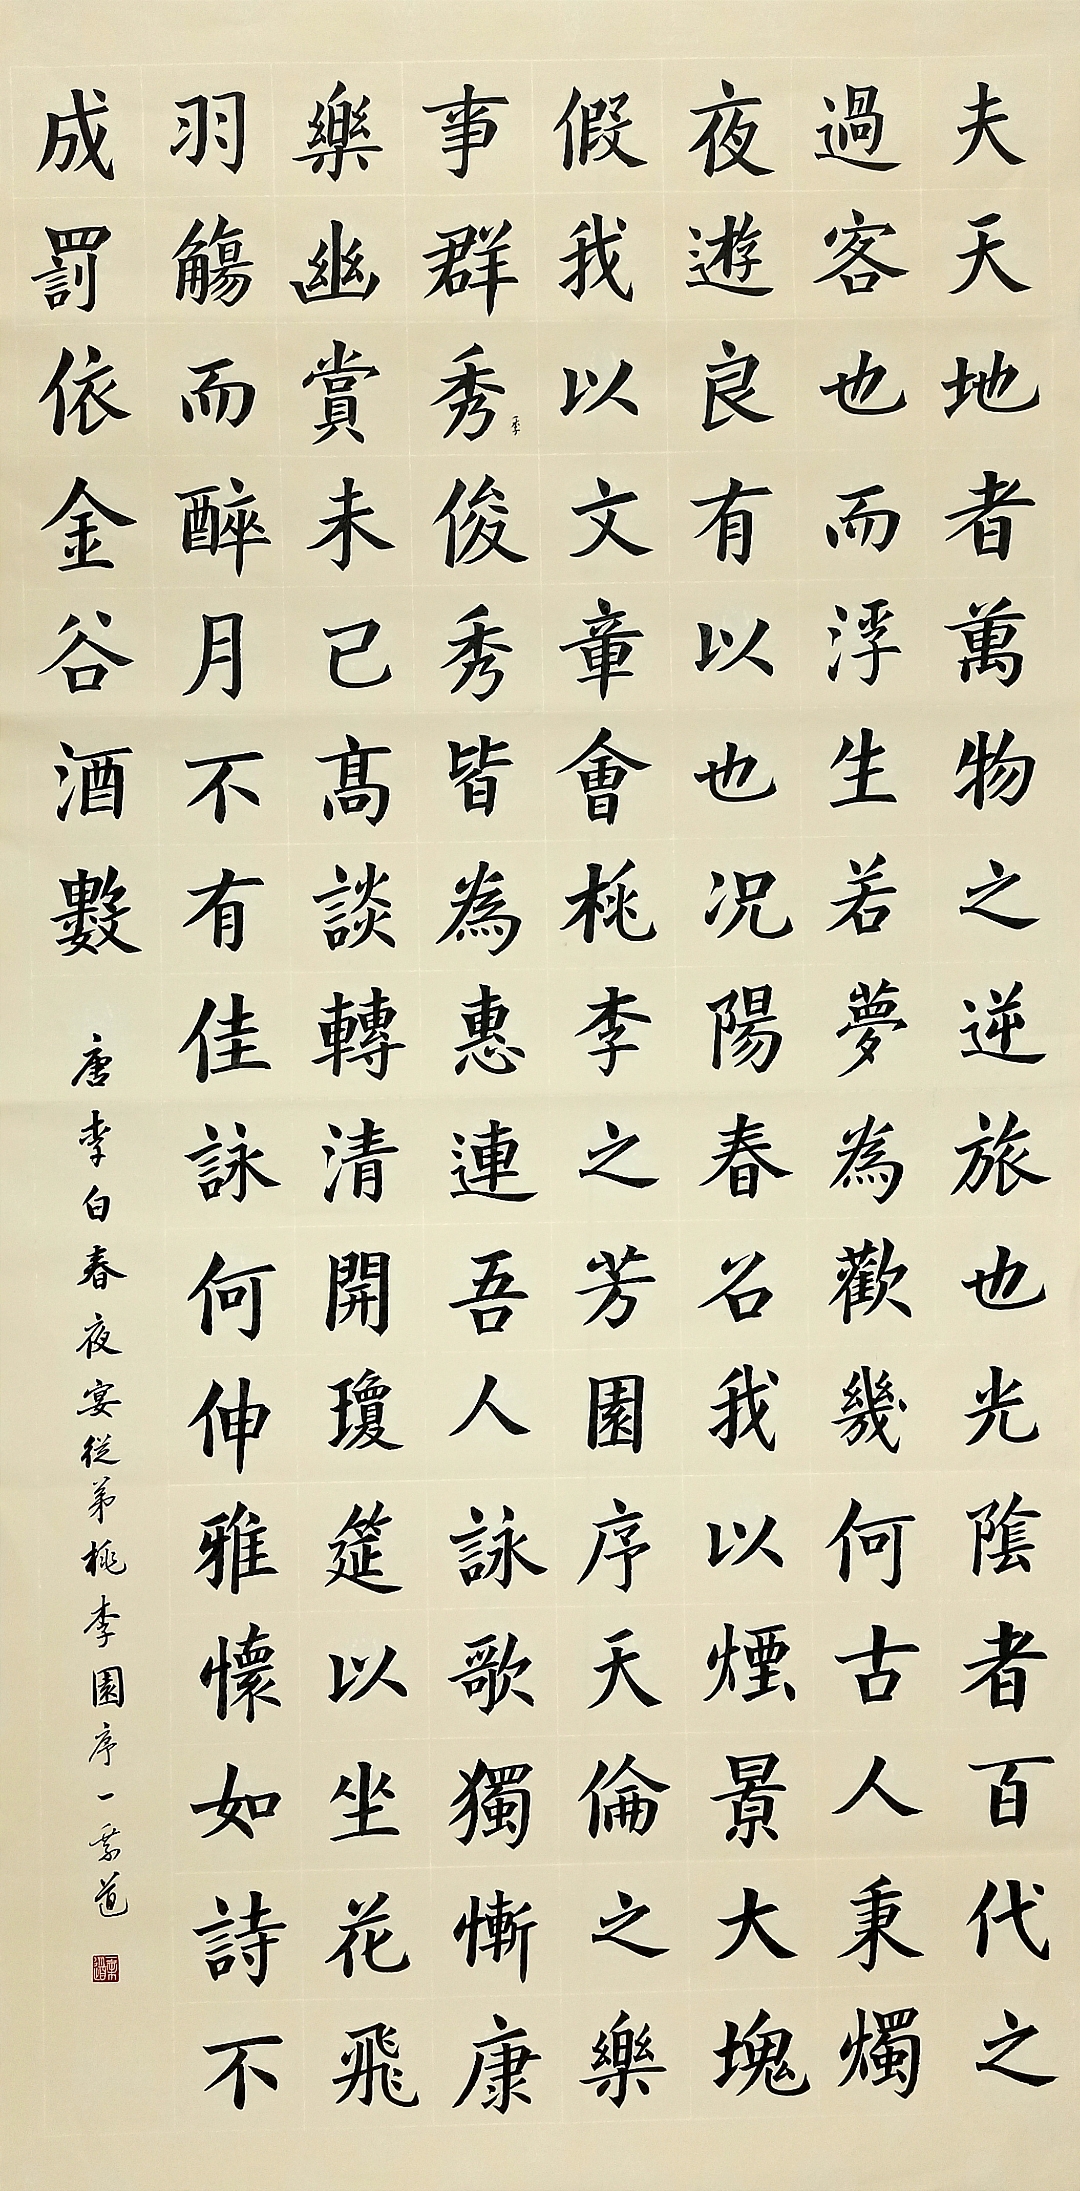 夫天地者萬物之逆旅也光陰者百代之
過客也而浮生若夢為歡幾何古人秉燭
夜遊良有以也况陽春召我以煙景大塊
假我以文章會桃李之芳園序天倫之樂
事群秀季俊秀皆為惠連吾人詠歌獨慚康
樂幽賞未已髙談轉清開瓊筵以坐花飛
羽觴而醉月不有佳詠何伸雅懷如詩不
成罰依金谷酒數
唐李白春夜宴從弟桃李園序一道